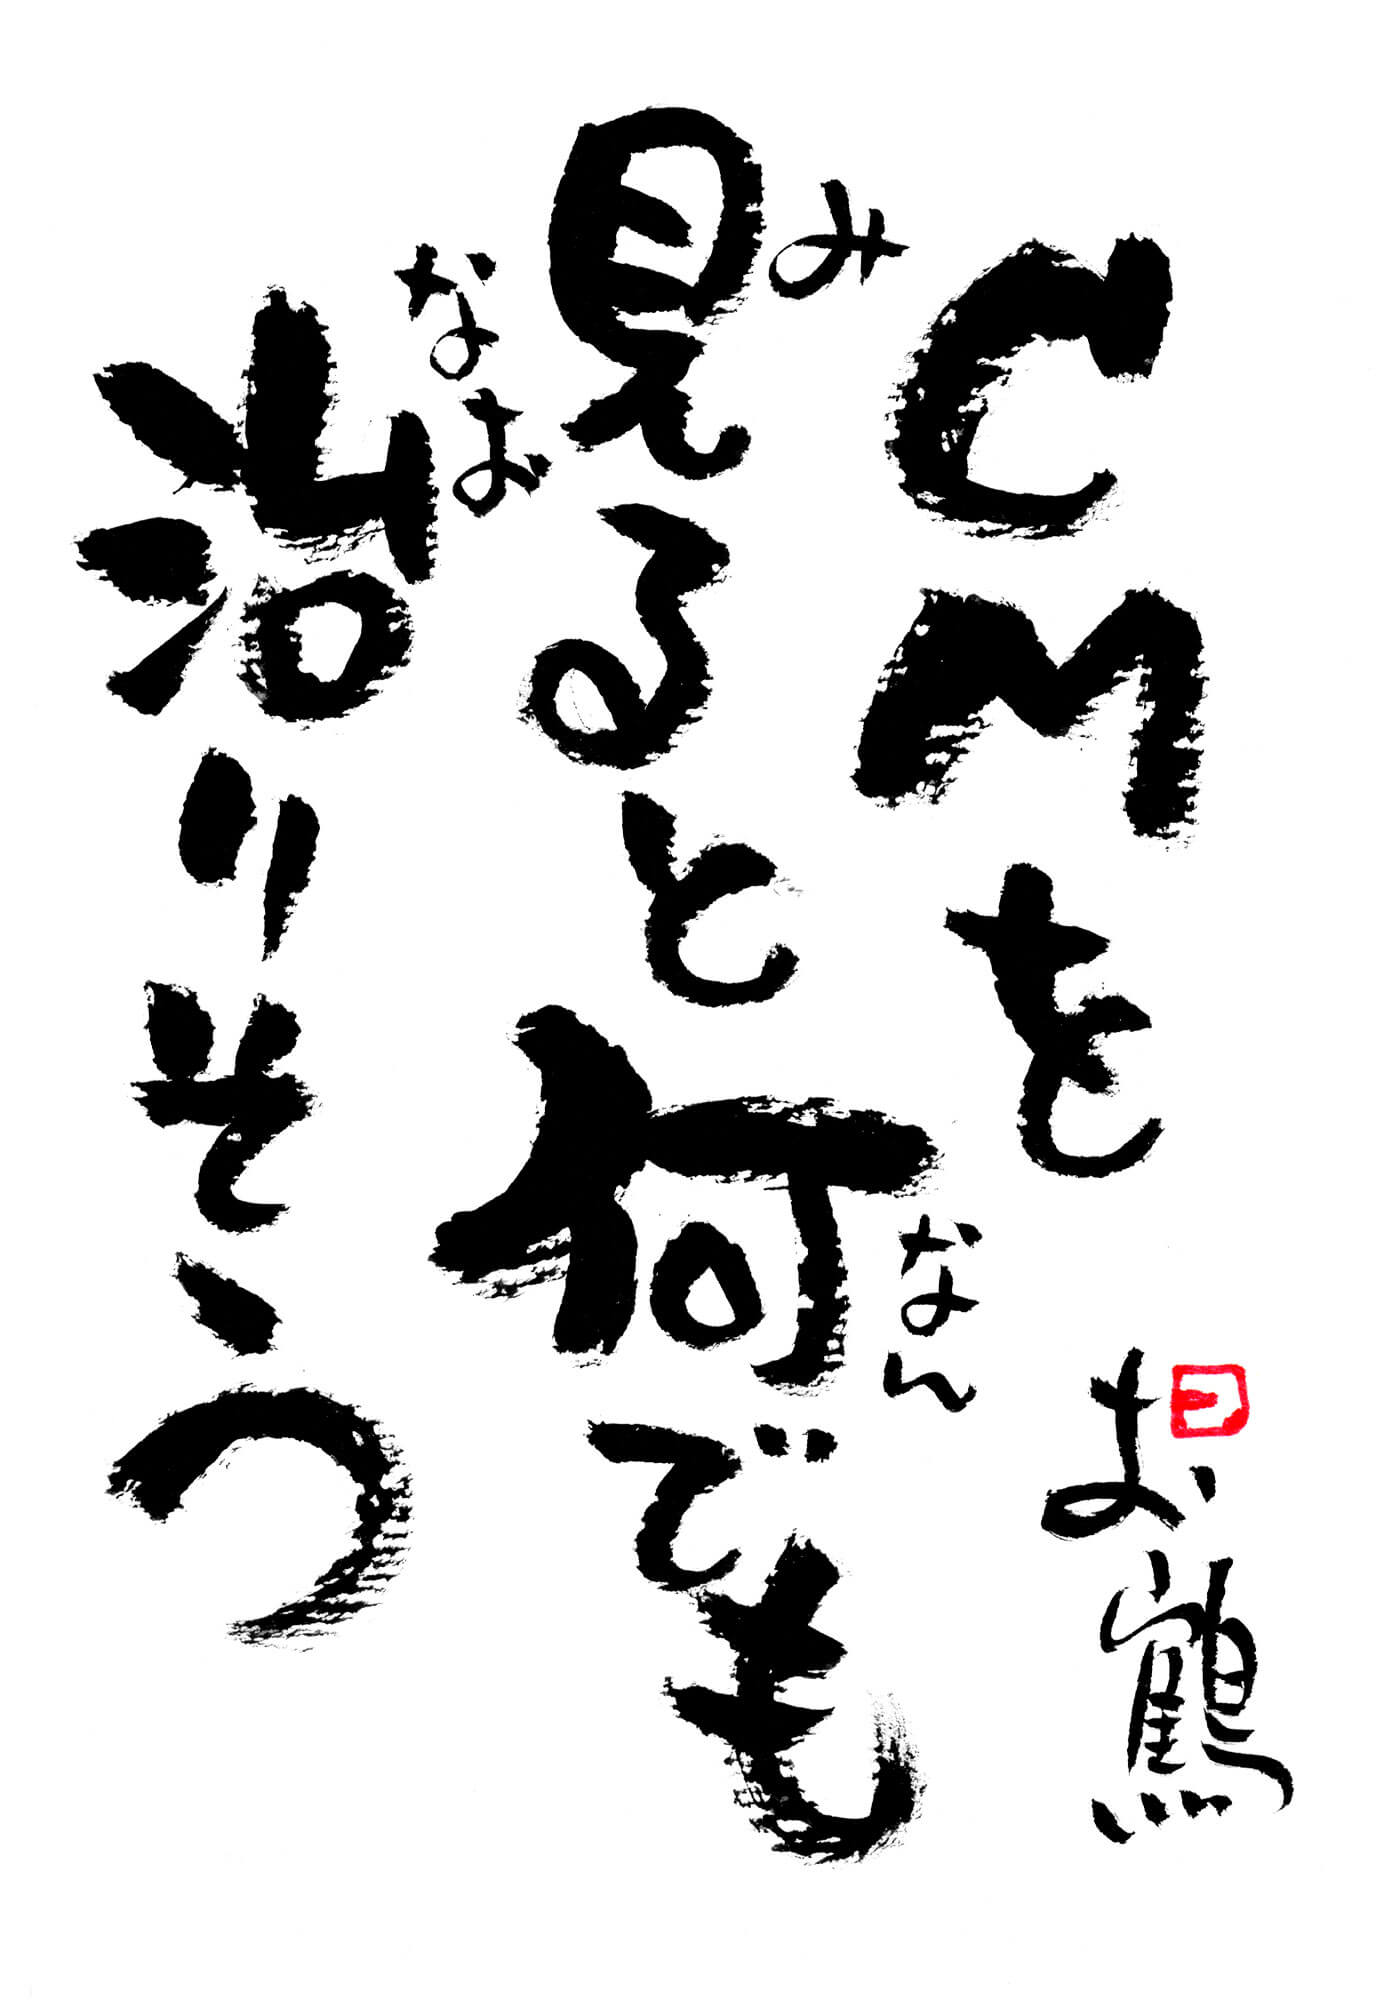 CMを
見ると何でも
み
なん
治りそう
なお
お鶴